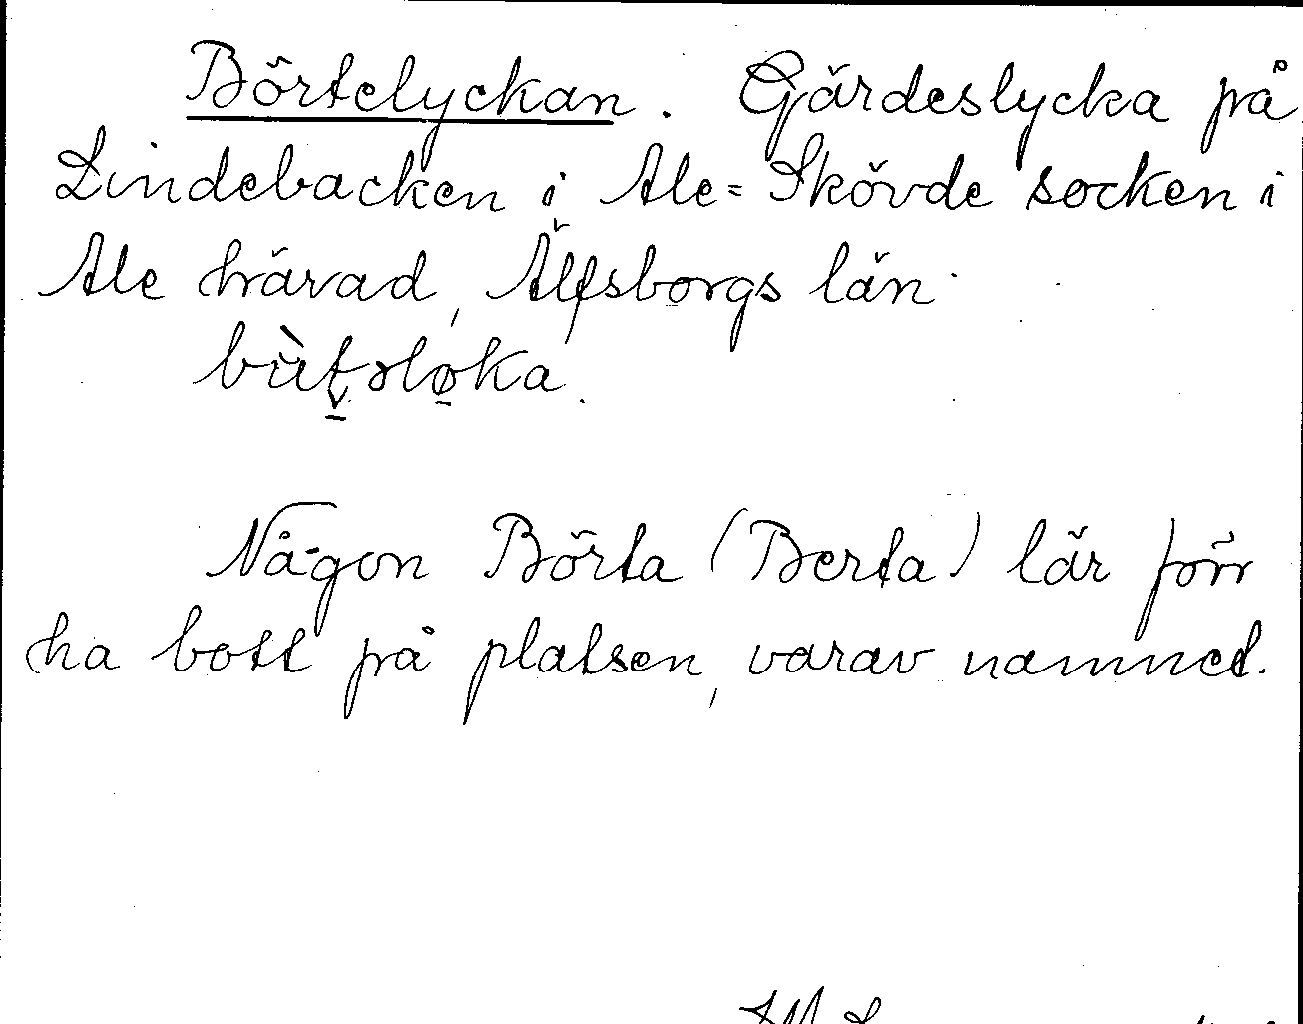 Börtelyckan. Gärdeslycka på
Lindebacken i Ale=Skövde socken i
Ale härad, Älfsborgs län.
Någon Börta (Berta) lär förr
ha bott på platsen, varav namnet.